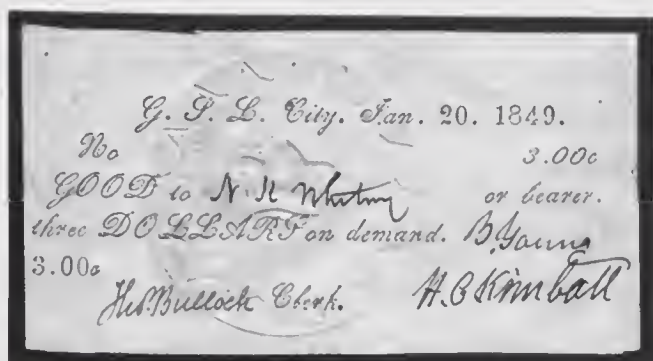 G. S. L. City. Jan. 20. 1849.
No 3.00c
GOOD to N. K Whitney or bearer.
three DOLLARS on demand. B. Young
3.00c
Clerk. H. C Kimball